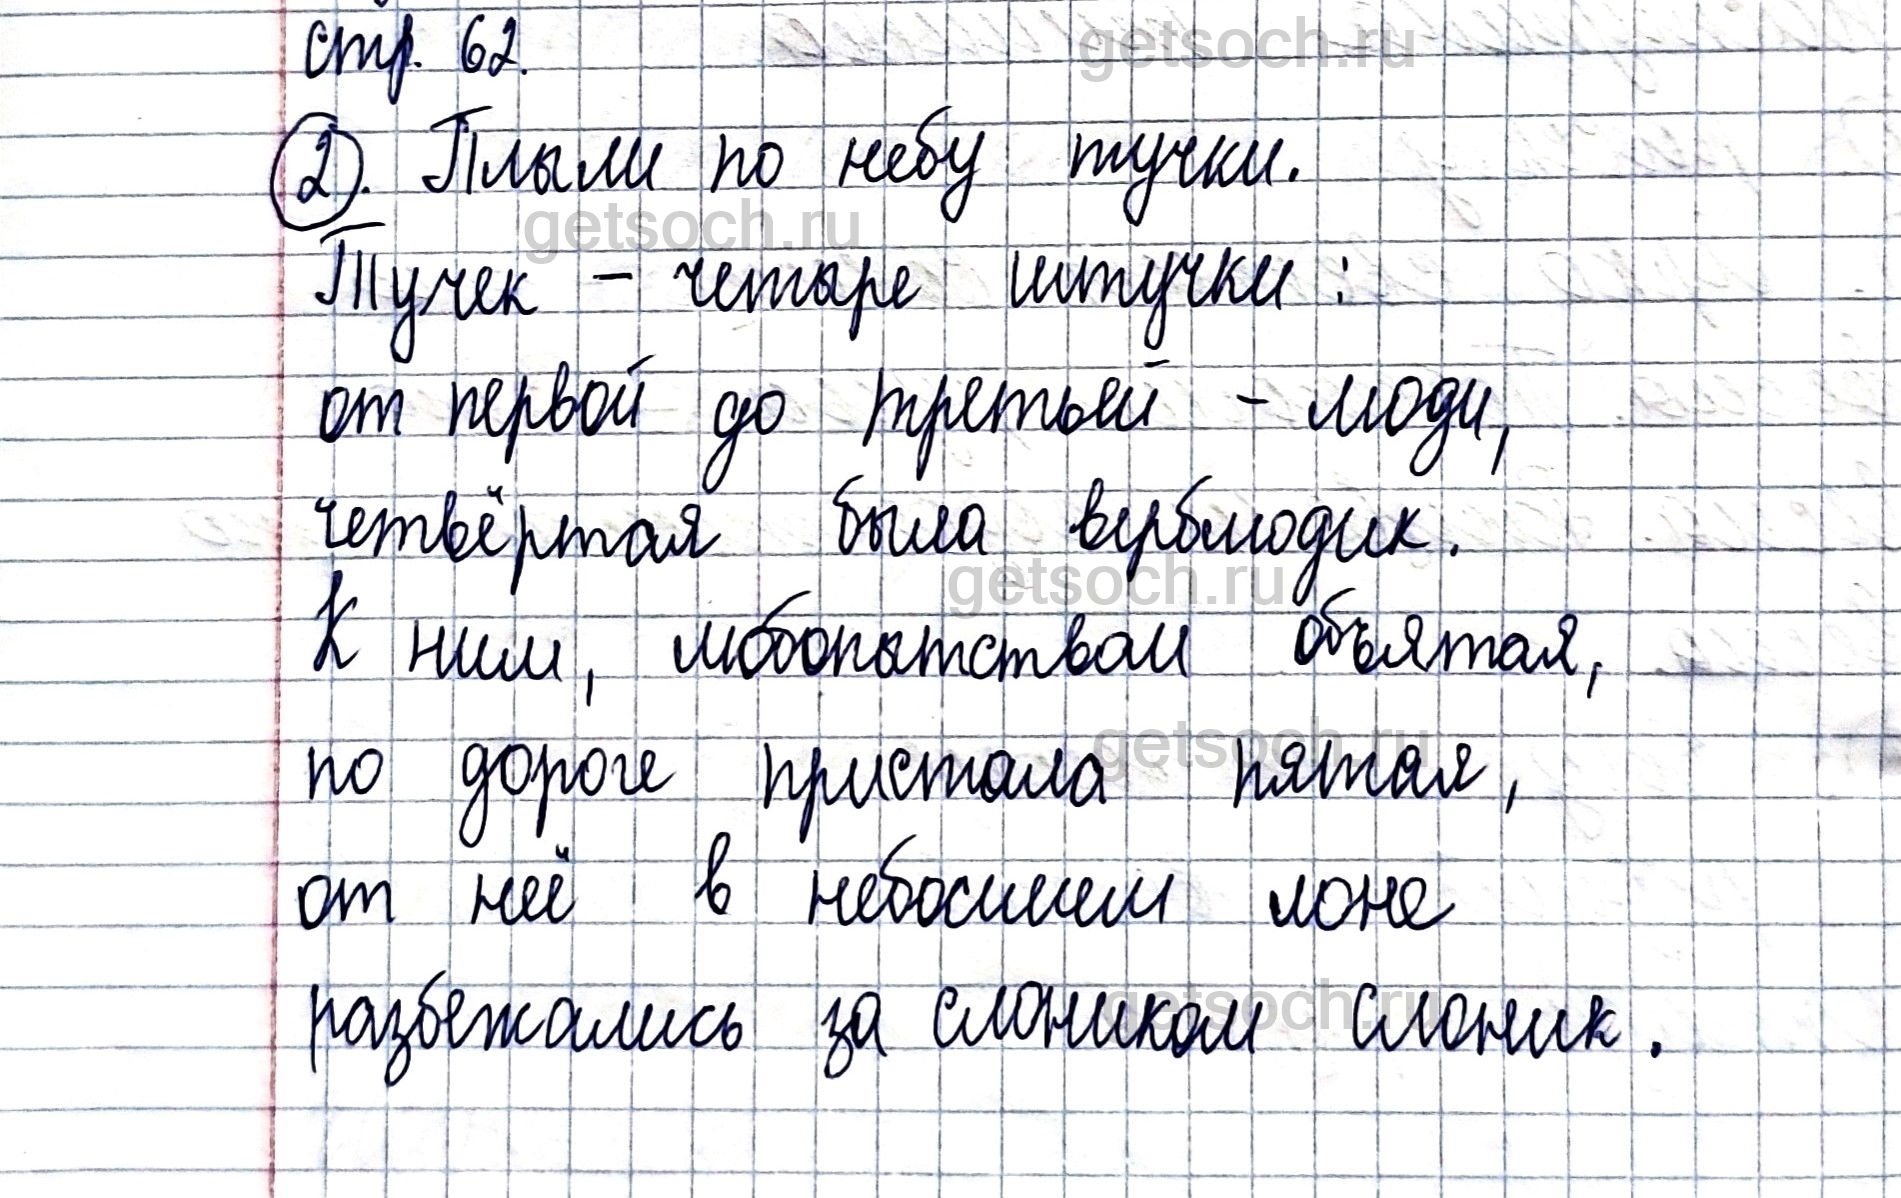 стр. 62.
getsoch.ru
2. Плыли по небу тучки.
getsoch.ru
Тучек – четыре штучки:
от первой до третьей – люди,
четвёртая была верблюдик.
getsoch.ru
К ним, любопытством объятая,
getsoch.ru
по дороге пристала пятая,
от неё в небосинем лоне
getsoch.ru
разбежались за слоником слоник.